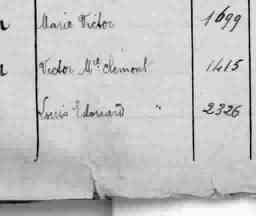 Marie Victor 1699
Victor Mie Clément 1415
Louis Edouard " 2326